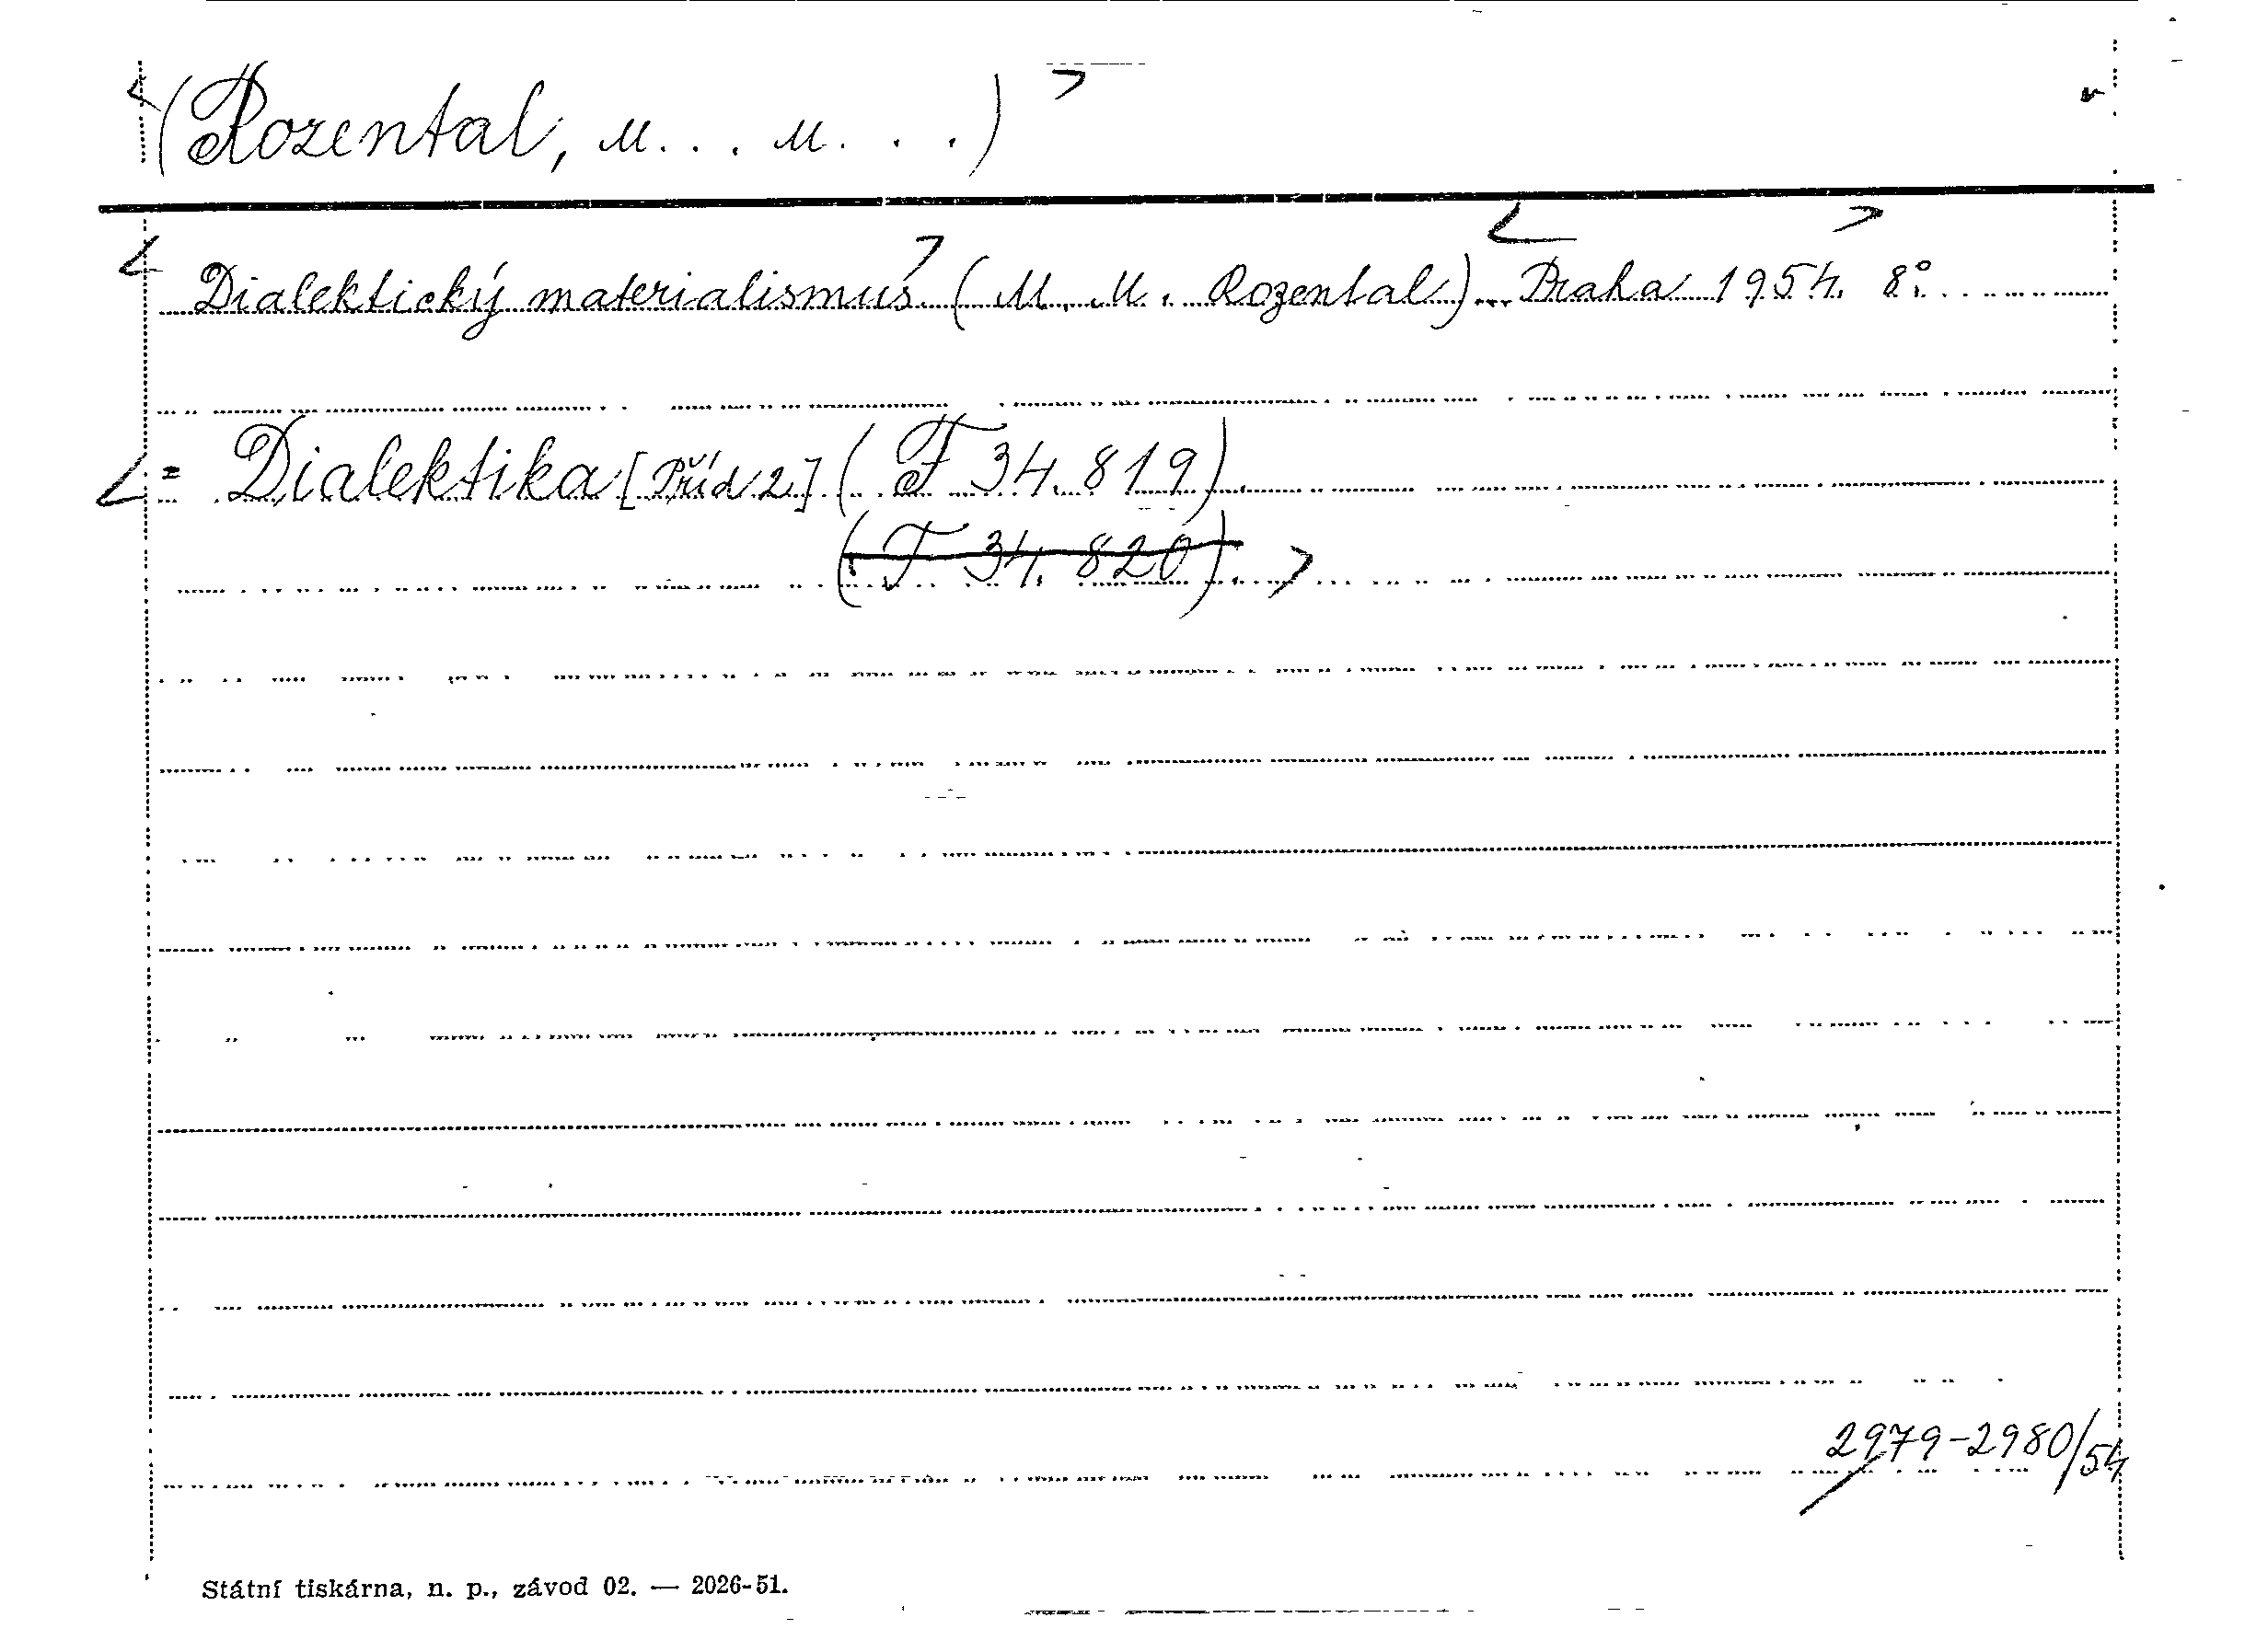 <(Rozental, M... M...)>
<Dialektický materialismus> (M. M. Rozental)... <Praha 1954.> 8°.
<= Dialektika [Příd 2] (F 34.819).
(F 34.820).>
2979-2980/54
Státní tiskárna, n. p., závod 02. — 2026-51.